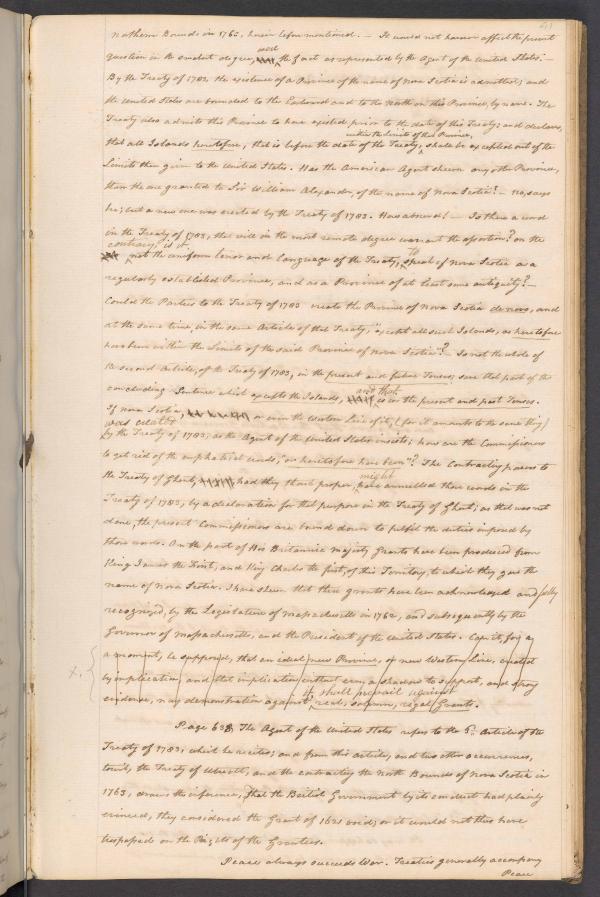 Northern Bounds in 1763, herein before mentioned. — It would not however affect the present
question in the smallest degree, was the fact as represented by the Agent of the United States. —
By the Treaty of 1783 the existence of a Province of the name of Nova Scotia is admitted; and
the United States are bounded to the Eastward and to the North on this Province, by name. The
Treaty also admits this Province to have existed prior to the date of this Treaty; and declares,
that all Islands heretofore, that is before the date of the Treaty, within the Limits of this Province, shall be excepted out of the
Limits then given to the United States. Has the American Agent shewn any other Province,
than the one granted to Sir William Alexander, of the name of Nova Scotia? — No, says
he; but a new one was created by the Treaty of 1783. How absurd! — Is there a word
in the Treaty of 1783, that will in the most remote degree warrant the assertion? On the
contrary is it not the uniform tenor and Language of the Treaty, to speak of Nova Scotia as a
regularly established Province, and as a Province of at least some antiquity? —
Could the Parties to the Treaty of 1783 create the Province of Nova Scotia de novo, and
at the same time, in the same Article of that Treaty, "except all such Islands, as heretofore
have been within the Limits of the said Province of Nova Scotia"? Is not the whole of
the second Article, of the Treaty of 1783, in the present and future Tenses; save that part of the
concluding Sentence which excepts the Islands, and that is in the present and past Tenses.
If Nova Scotia, or even the Western Line of it, (for it amounts to the same thing)
was created
by the Treaty of 1783; as the Agent of the United States insists; how are the Commissioners
to get rid of the emphatical words, "or heretofore have been"? The Contracting powers to
the Treaty of Ghent, had they thought proper, might have annulled these words in the
Treaty of 1783, by a declaration for that purpose in the Treaty of Ghent; as that was not
done, the present Commissioners are bound down to fulfil the duties imposed by
those words. On the part of His Britannic Majesty Grants have been produced from
King James the First, and King Charles the first, of this Territory, to which they gave the
name of Nova Scotia. I have shewn that these grants have been acknowledged and fully
recognized, by the Legislature of Massachusetts in 1762, and subsequently by the
Governor of Massachusetts, and the President of the United States. Can it, for a
a moment, be supposed, that an ideal new Province, or new Western Line, created
by implication, and that implication without even a shadow to support, and every
evidence, nay demonstration against it, shall prevail against real, solemn, regal Grants.
Page 638, The Agent of the United States refers to the 5th. Article of the
Treaty of 1783, which he recites; and from this article, and two other occurrences,
to wit, the Treaty of Utrecht, and the contracting the North Bounds of Nova Scotia in
1763, draws the inference, that the British Government by its conduct had plainly
evinced, they considered the Grant of 1621 void; or it would not thus have
trespassed on the Rights of the Grantees.
Peace always succeeds War. Treaties generally accompany
Peace